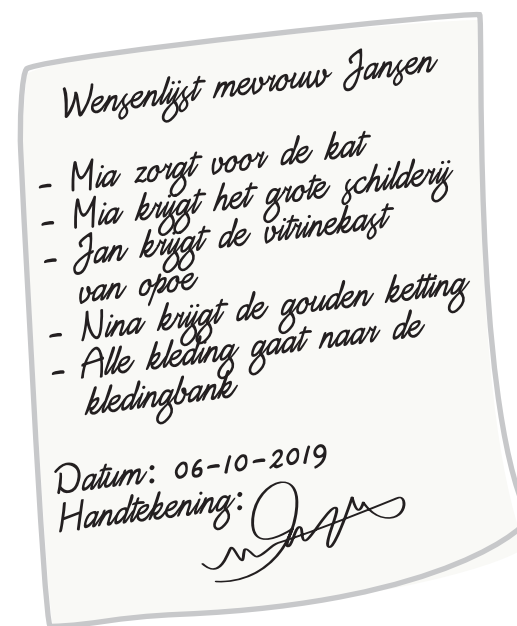 Wensenlijst mevrouw Jansen
- Mia zorgt voor de kat
- Mia krijgt het grote schilderij
- Jan krijgt de vitrinekast
van opoe
- Nina krijgt de gouden ketting
- Alle kleding gaat naar de
kledingbank
Datum: 06-10-2019
Handtekening: